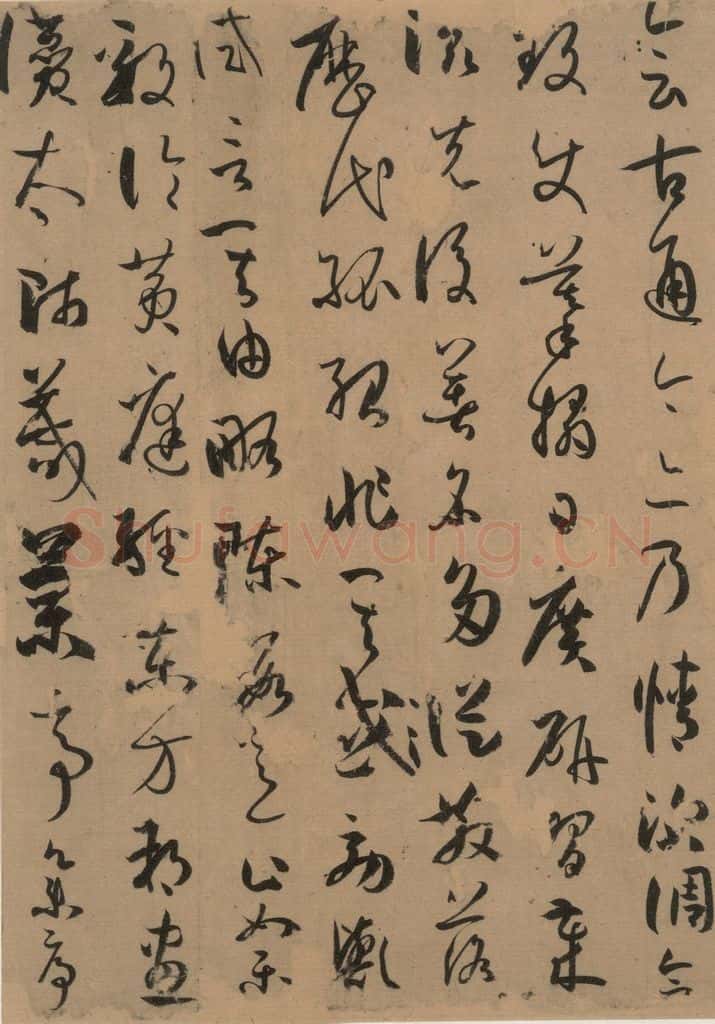 會古通今亦乃情深調合
致使摹搨日廣研習歲
滋先後著名多從散落
歷代孤紹非其效與
試言其由略陳數意止如樂
毅論黃庭經東方朔畫
讚太師箴蘭亭集序
Shufawang.CN